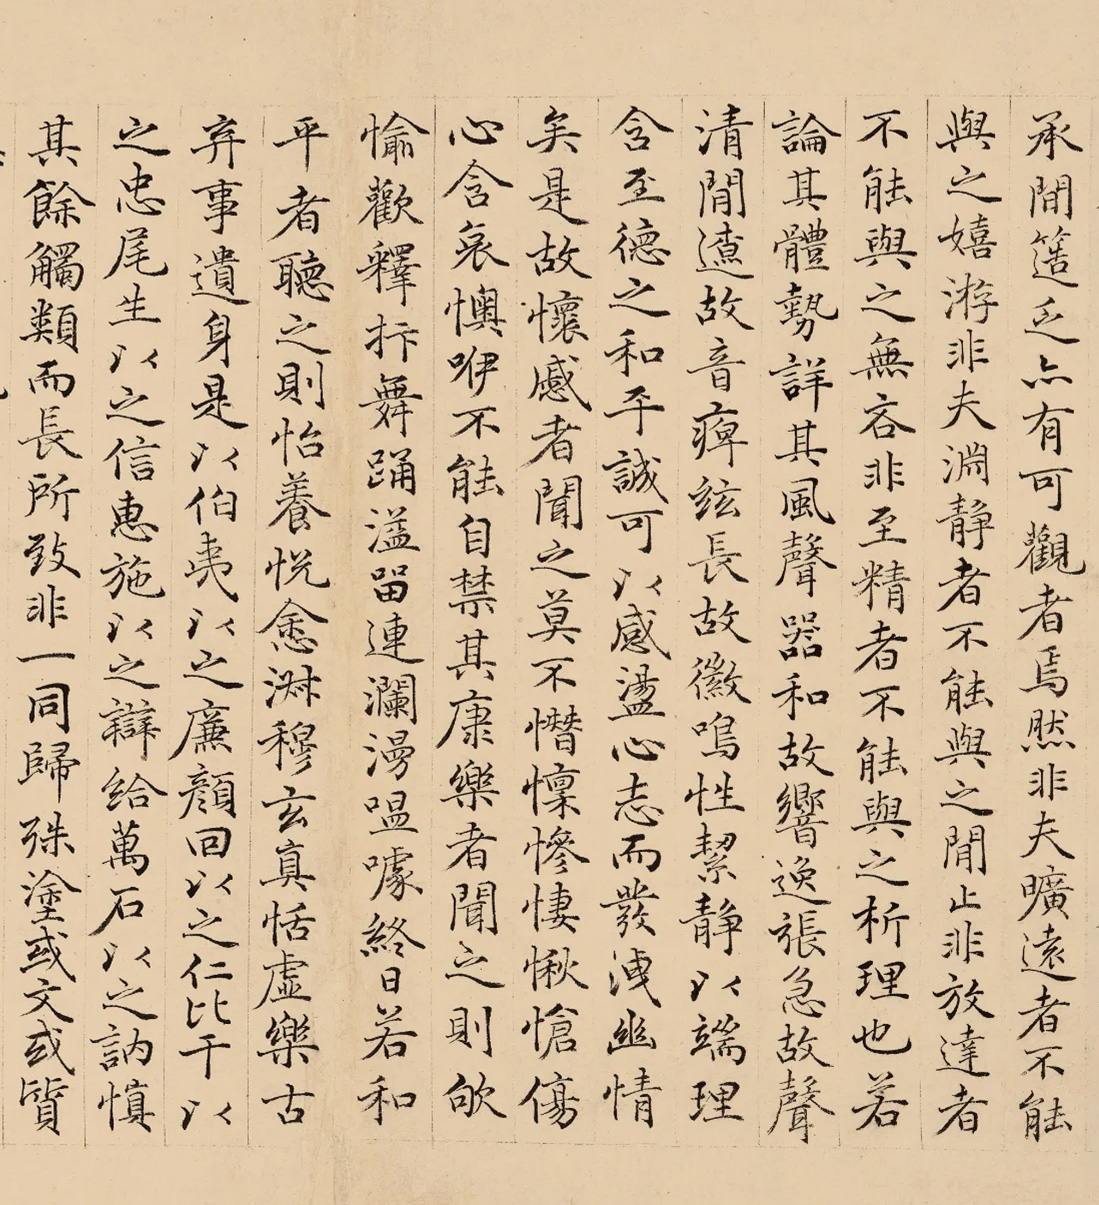 承閒簉乏亦有可觀者焉然非夫曠遠者不能
與之嬉游非夫淵静者不能與之閒止非放達者
不能與之無吝非至精者不能與之析理也若
論其體勢詳其風聲器和故響逸張急故聲
清閒遼故音痺弦長故徽鳴性絜静以端理
含至德之和平誠可以感盪心志而發洩幽情
矣是故懷慼者聞之莫不憯懍慘悽愀愴傷
心含哀懊咿不能自禁其康樂者聞之則欨
愉歡釋抃舞踊溢留連瀾漫嗢噱終日若和
平者聽之則怡養悅悆淑穆玄真恬虛樂古
弃事遺身是以伯夷以之廉顏回以之仁比干以
之忠尾生以之信惠施以之辯給萬石以之訥慎
其餘觸類而長所致非一同歸殊塗或文或質